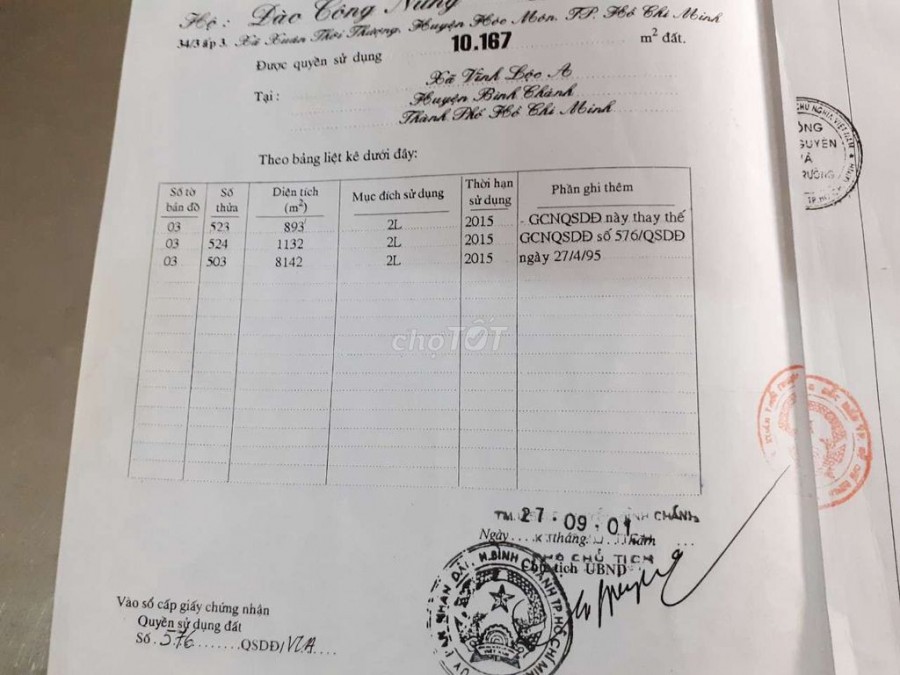 Hộ : Đào Công Nừng
34/3 ấp 3, Xã Xuân Thới Thượng, Huyện Hóc Môn, TP. Hồ Chí Minh
Được quyền sử dụng 10.167 m² đất.
Tại : Xã Vĩnh Lộc A
Huyện Bình Chánh
Thành Phố Hồ Chí Minh
Theo bảng liệt kê dưới đây:
Số tờ bản đồ Số thửa Diện tích (m²) Mục đích sử dụng Thời hạn sử dụng Phần ghi thêm
03 523 893 2L 2015 - GCNQSDĐ này thay thế
03 524 1132 2L 2015 GCNQSDĐ số 576/QSDĐ
03 503 8142 2L 2015 ngày 27/4/95
chợTỐT
TM. BÌNH CHÁNH
27 . 09 . 01
Ngày tháng năm
PHÓ CHỦ TỊCH
Chủ tịch UBND
Vào sổ cấp giấy chứng nhận
Quyền sử dụng đất
Số 576 QSDĐ/VLA
NHÂN DÂN . H.BÌNH CHÁNH TP.HỒ CHÍ MINH